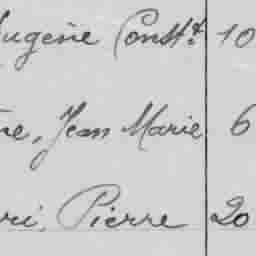 Eugène Const.t 10
ne, Jean Marie 6
ri, Pierre 20